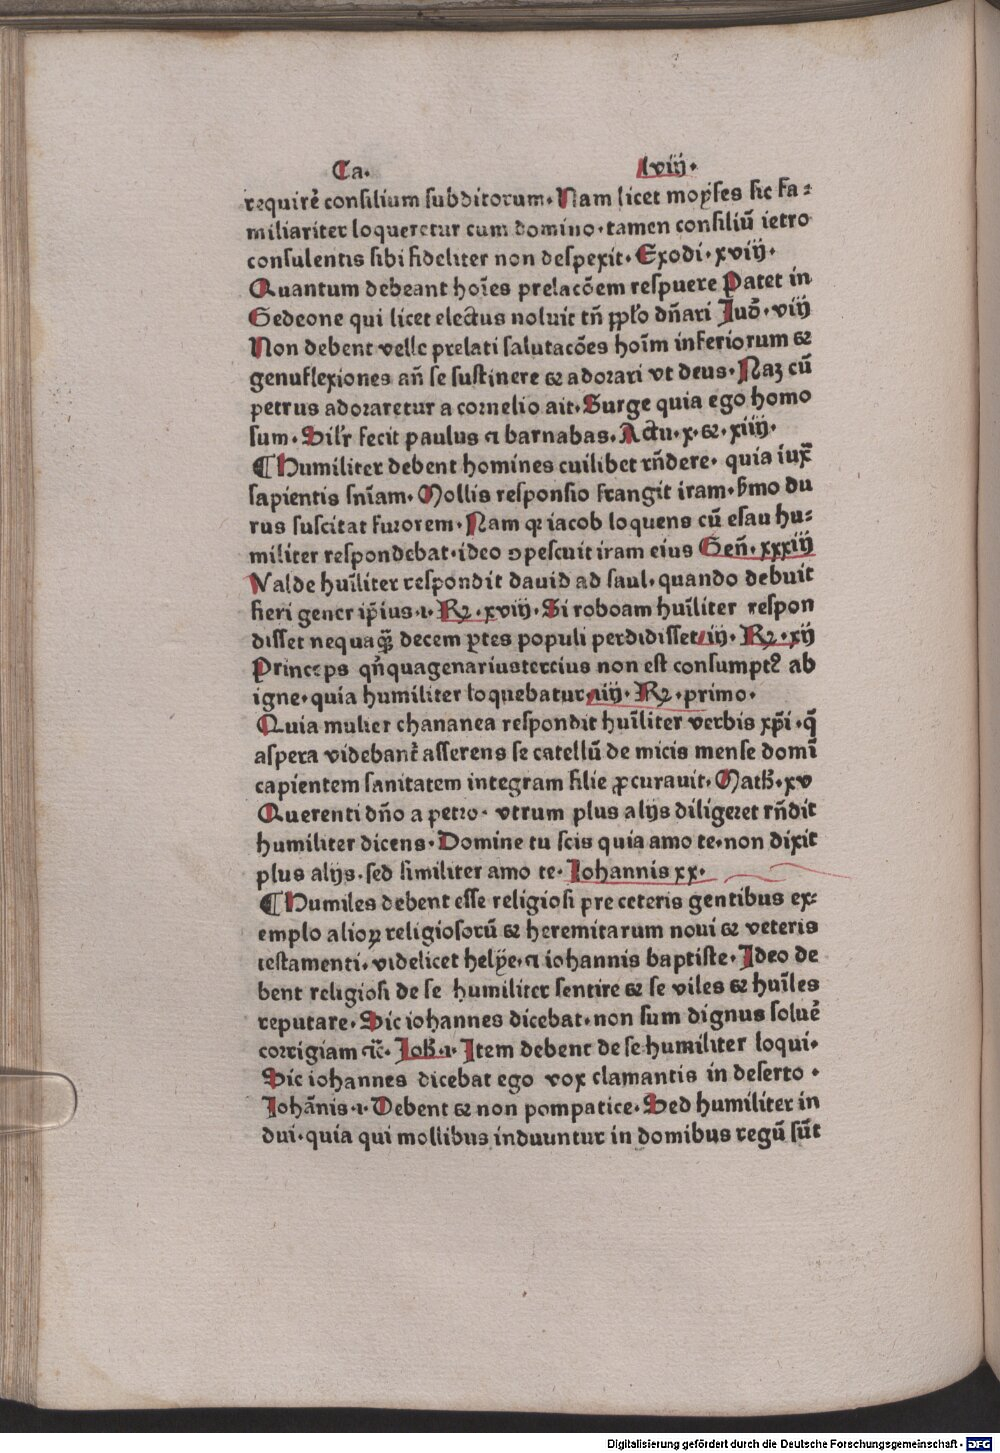 Ca. lviij.
requirē consilium subditorum. Nam licet moyses sic fa⸗
miliariter loqueretur cum domino. tamen consiliū ietro
consulentis sibi fideliter non despexit. Exodi. xviij.
Quantum debeant hoīes prelacōem respuere Patet in
Gedeone qui licet electus noluit tn̄ pplo dn̄ari Iud. viij
Non debent velle prelati salutacōes hoīm inferiorum &
genuflexiones an̄ se sustinere & adorari vt deus. Naʒ cū
petrus adoraretur a cornelio ait. Surge quia ego homo
sum. Silr fecit paulus ⁊ barnabas. Actu. x. &. xiiij.
¶ Humiliter debent homines cuilibet rn̄dere. quia iux̄
sapientis sn̄iam. Mollis responsio frangit iram. ẜmo du
rus suscitat furorem. Nam qꝛ iacob loquens cū esau hu⸗
militer respondebat. ideo ↄpescuit iram eius Gen̄. xxxiij
Valde huīliter respondit dauid ad saul. quando debuit
fieri gener ip̄ius. 1. Rꝝ. xviij. Si roboam huīliter respon
disset nequaq̄ꝫ decem ꝑtes populi perdidisset. iij. Rꝝ. xij
Princeps qn̄quagenarius tercius non est consumptꝰ ab
igne. quia humiliter loquebatur. iiij. Rꝝ. primo.
Quia mulier chananea respondit huīliter verbis xp̄i. q̄
aspera videbant᷑ asserens se catellū de micis mense domī
capientem sanitatem integram filie ꝓcurauit. Math. xv
Querenti dn̄o a petro. vtrum plus alijs diligeret rn̄dit
humiliter dicens. Domine tu scis quia amo te. non dixit
plus alijs. sed similiter amo te. Iohannis xx.
¶ Humiles debent esse religiosi pre ceteris gentibus ex⸗
emplo alioꝝ religiosorū & heremitarum noui & veteris
testamenti. videlicet helye. ⁊ iohannis baptiste. Ideo de
bent religiosi de se humiliter sentire & se viles & huīles
reputare. Sic iohannes dicebat. non sum dignus soluē
corrigiam ⁊c̄. Ioh. 1. Item debent de se humiliter loqui.
Sic iohannes dicebat ego vox clamantis in deserto.
Iohānis. 1. Debent & non pompatice. Sed humiliter in
dui. quia qui mollibus induuntur in domibus regū sūt
Digitalisierung gefördert durch die Deutsche Forschungsgemeinschaft - DFG